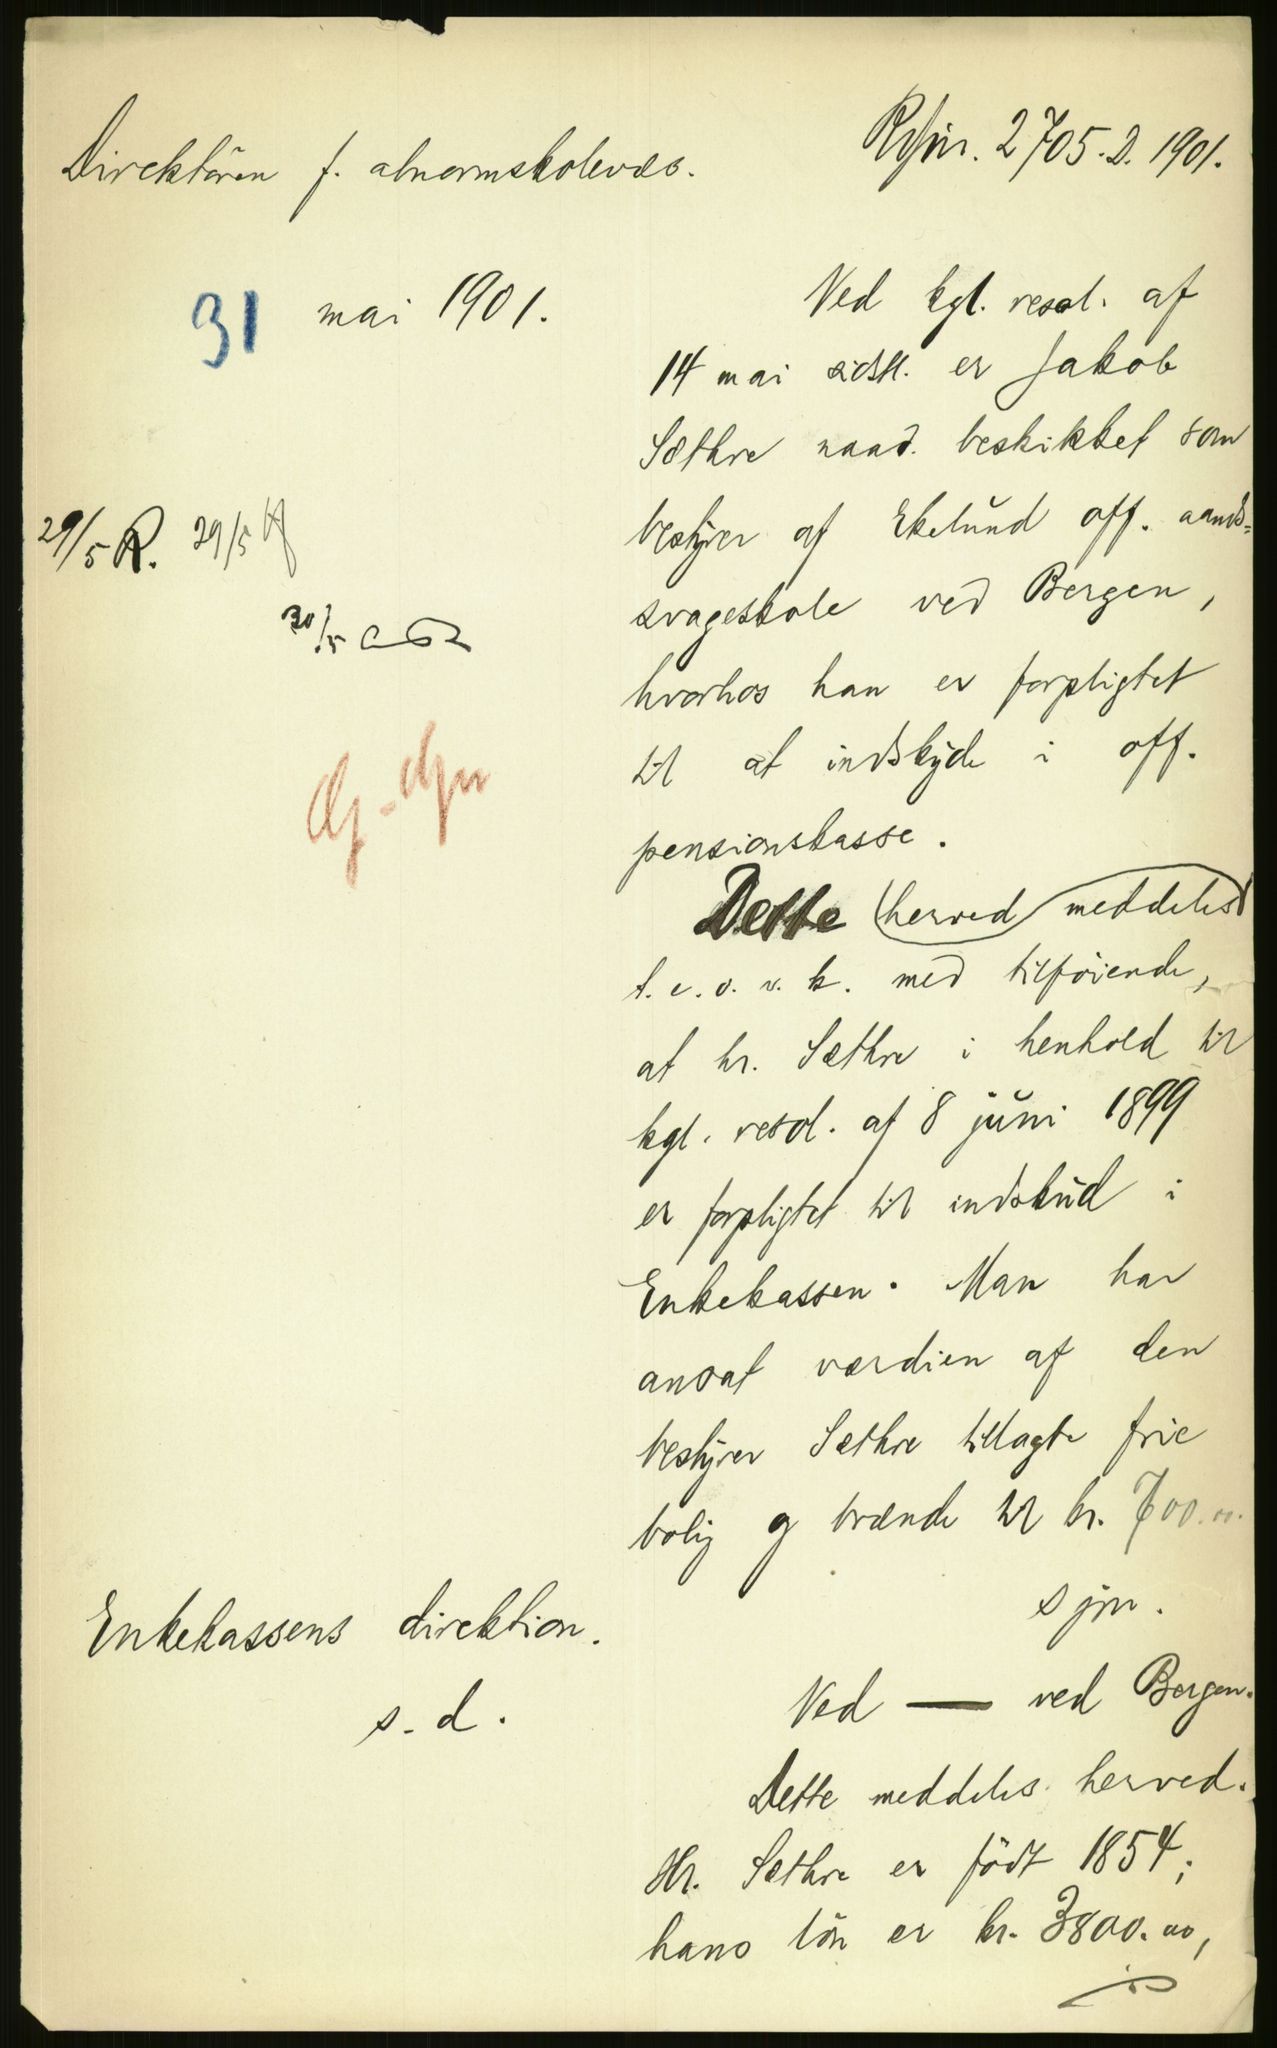 Direktören f. abnormskolevæs.
Rfnr. 2705. D. 1901.
31 mai 1901.
Ved kgl. resol. af
14 mai sidstl. er Jakob
Sæthre naad. beskikket som
bestyrer af Ekelund off. aands-
svageskole ved Bergen,
hvorhos han er forpligtet
til at indskyde i off.
pensionskasse.
29/5 R. 29/5
30/5
Dette herved meddeles
t. e. o. v. k. med tilföiende,
at hr. Sæthre i henhold til
kgl. resol. af 8 juni 1899
er forpligtet til indskud i
Enkekassen. Man har
ansat værdien af den
bestyrer Sæthre tillagte frie
bolig og brænde til kr. 700.00.
Enkekassens direktion.
s. d.
Ved — ved Bergen.
Dette meddeles herved.
Hr. Sæthre er födt 1854;
hans lön er kr. 3800.00,